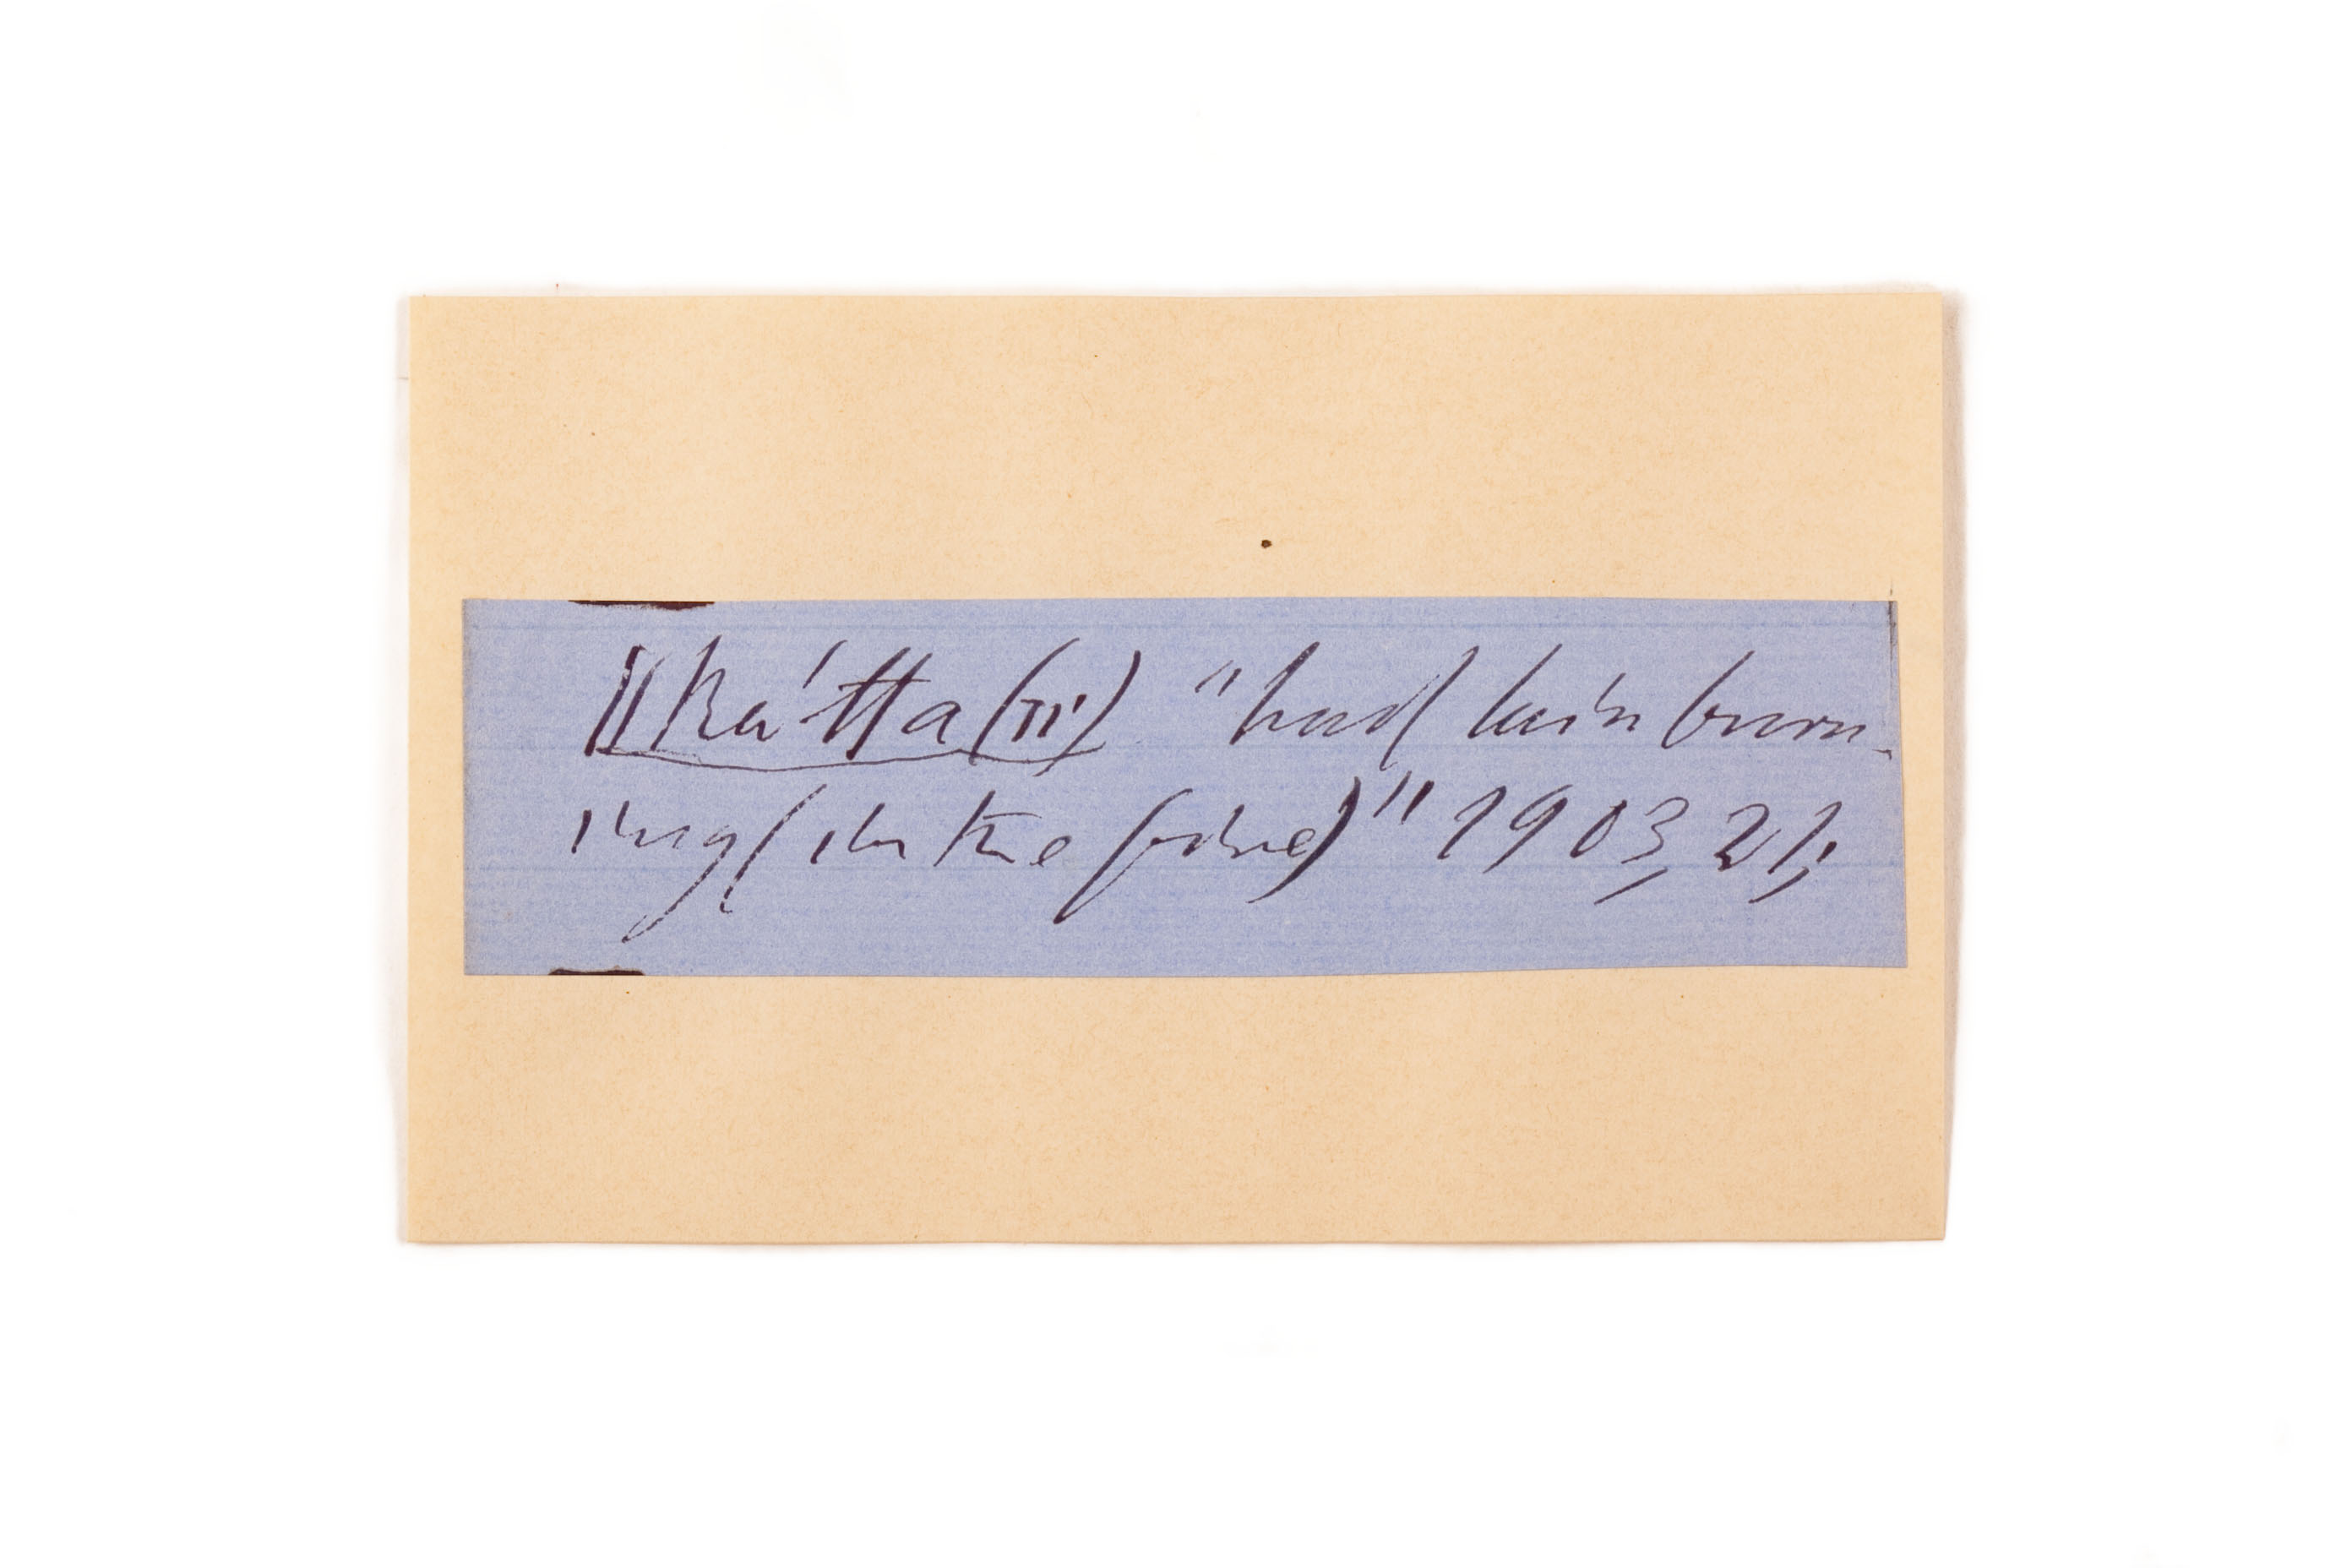 ǁká'tta (TT') "had lain burn-
ing (in the fire)" 1903, 21;